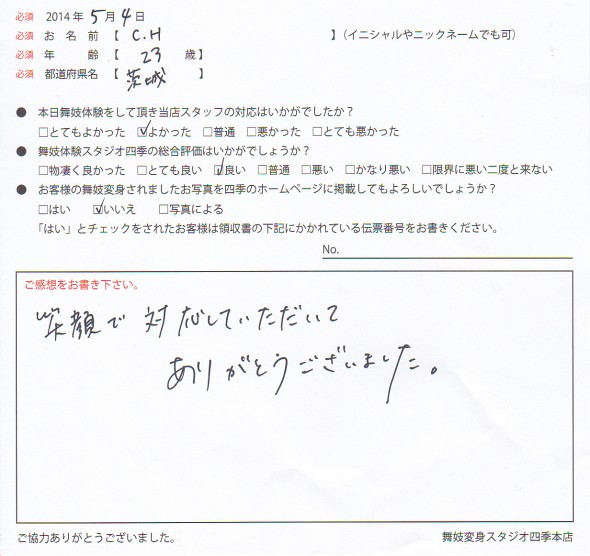 必須 2014年 5月 4日
必須 お名前【 C.H 】(イニシャルやニックネームでも可)
必須 年齢【 23 歳】
必須 都道府県名【 茨城 】
● 本日舞妓体験をして頂き当店スタッフの対応はいかがでしたか？
□とてもよかった ☑よかった □普通 □悪かった □とても悪かった
● 舞妓体験スタジオ四季の総合評価はいかがでしょうか？
□物凄く良かった □とても良い ☑良い □普通 □悪い □かなり悪い □限界に悪い二度と来ない
● お客様の舞妓変身されましたお写真を四季のホームページに掲載してもよろしいでしょうか？
□はい ☑いいえ □写真による
「はい」とチェックをされたお客様は領収書の下記にかかれている伝票番号をお書きください。
No.
ご感想をお書き下さい。
笑顔で対応していただいて
ありがとうございました。
ご協力ありがとうございました。 舞妓変身スタジオ四季本店